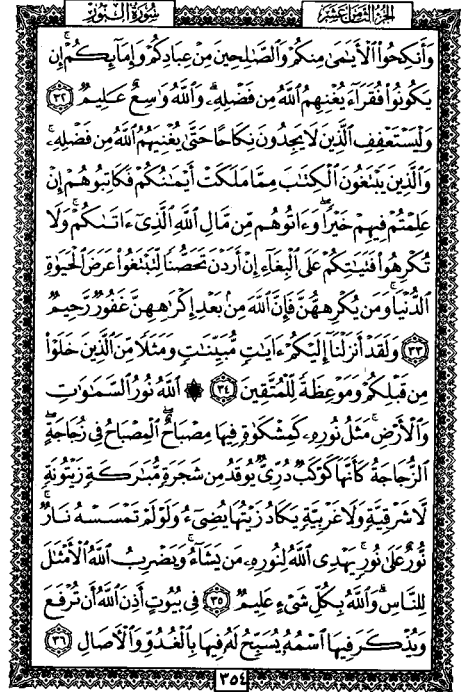 سُورَةُ النُّورِ
الجزء الثامن عشر
وَأَنكِحُوا۟ ٱلْأَيَـٰمَىٰ مِنكُمْ وَٱلصَّـٰلِحِينَ مِنْ عِبَادِكُمْ وَإِمَآئِكُمْ ۚ إِن
يَكُونُوا۟ فُقَرَآءَ يُغْنِهِمُ ٱللَّهُ مِن فَضْلِهِۦ ۗ وَٱللَّهُ وَٰسِعٌ عَلِيمٌ ٣٢
وَلْيَسْتَعْفِفِ ٱلَّذِينَ لَا يَجِدُونَ نِكَاحًا حَتَّىٰ يُغْنِيَهُمُ ٱللَّهُ مِن فَضْلِهِۦ ۗ
وَٱلَّذِينَ يَبْتَغُونَ ٱلْكِتَـٰبَ مِمَّا مَلَكَتْ أَيْمَـٰنُكُمْ فَكَاتِبُوهُمْ إِنْ
عَلِمْتُمْ فِيهِمْ خَيْرًا ۖ وَءَاتُوهُم مِّن مَّالِ ٱللَّهِ ٱلَّذِىٓ ءَاتَىٰكُمْ ۚ وَلَا
تُكْرِهُوا۟ فَتَيَـٰتِكُمْ عَلَى ٱلْبِغَآءِ إِنْ أَرَدْنَ تَحَصُّنًا لِّتَبْتَغُوا۟ عَرَضَ ٱلْحَيَوٰةِ
ٱلدُّنْيَا ۚ وَمَن يُكْرِههُّنَّ فَإِنَّ ٱللَّهَ مِنۢ بَعْدِ إِكْرَٰهِهِنَّ غَفُورٌ رَّحِيمٌ
٣٣ وَلَقَدْ أَنزَلْنَآ إِلَيْكُمْ ءَايَـٰتٍ مُّبَيِّنَـٰتٍ وَمَثَلًا مِّنَ ٱلَّذِينَ خَلَوْا۟
مِن قَبْلِكُمْ وَمَوْعِظَةً لِّلْمُتَّقِينَ ٣٤ ۞ ٱللَّهُ نُورُ ٱلسَّمَـٰوَٰتِ
وَٱلْأَرْضِ ۚ مَثَلُ نُورِهِۦ كَمِشْكَوٰةٍ فِيهَا مِصْبَاحٌ ۖ ٱلْمِصْبَاحُ فِى زُجَاجَةٍ ۖ
ٱلزُّجَاجَةُ كَأَنَّهَا كَوْكَبٌ دُرِّىٌّ يُوقَدُ مِن شَجَرَةٍ مُّبَـٰرَكَةٍ زَيْتُونَةٍ
لَّا شَرْقِيَّةٍ وَلَا غَرْبِيَّةٍ يَكَادُ زَيْتُهَا يُضِىٓءُ وَلَوْ لَمْ تَمْسَسْهُ نَارٌ ۚ
نُّورٌ عَلَىٰ نُورٍ ۗ يَهْدِى ٱللَّهُ لِنُورِهِۦ مَن يَشَآءُ ۚ وَيَضْرِبُ ٱللَّهُ ٱلْأَمْثَـٰلَ
لِلنَّاسِ ۗ وَٱللَّهُ بِكُلِّ شَىْءٍ عَلِيمٌ ٣٥ فِى بُيُوتٍ أَذِنَ ٱللَّهُ أَن تُرْفَعَ
وَيُذْكَرَ فِيهَا ٱسْمُهُۥ يُسَبِّحُ لَهُۥ فِيهَا بِٱلْغُدُوِّ وَٱلْـَٔاصَالِ ٣٦
٣٥٤